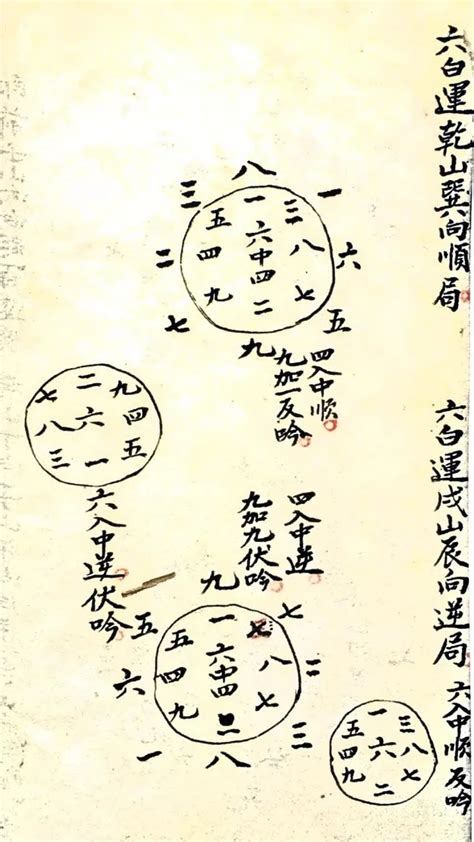 六白運乾山巽向順局
三 八 一
五 一 三
二 四 六中四 八 六
九 二 七
七 九 五
四入中顺
九加一反吟
七 二 九
八 六 四
三 一 五
六入中逆伏吟
六白運戌山辰向逆局
四入中逆
九加九伏吟
五 九 七
五 一 七
六 四 六中四 八 二
九 二 七
一 八 三
六入中順反吟
五 一 三
四 六 八
九 二 七